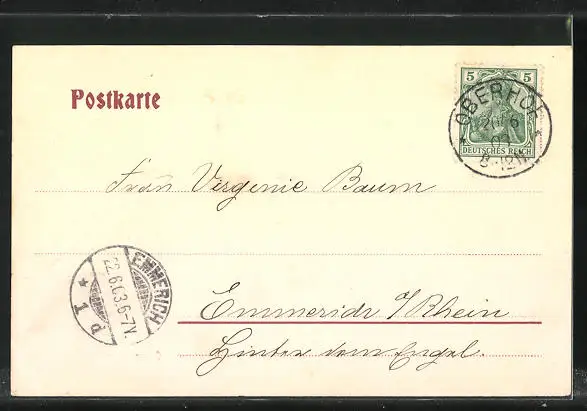 Postkarte
5 5
DEUTSCHES REICH
OBERHOF
8-12V.
Frau Virgenie Baum
EMMERICH
22.6.03.6-7V.
* 1 P
Emmerich a/Rhein
Hinter dem Engel.